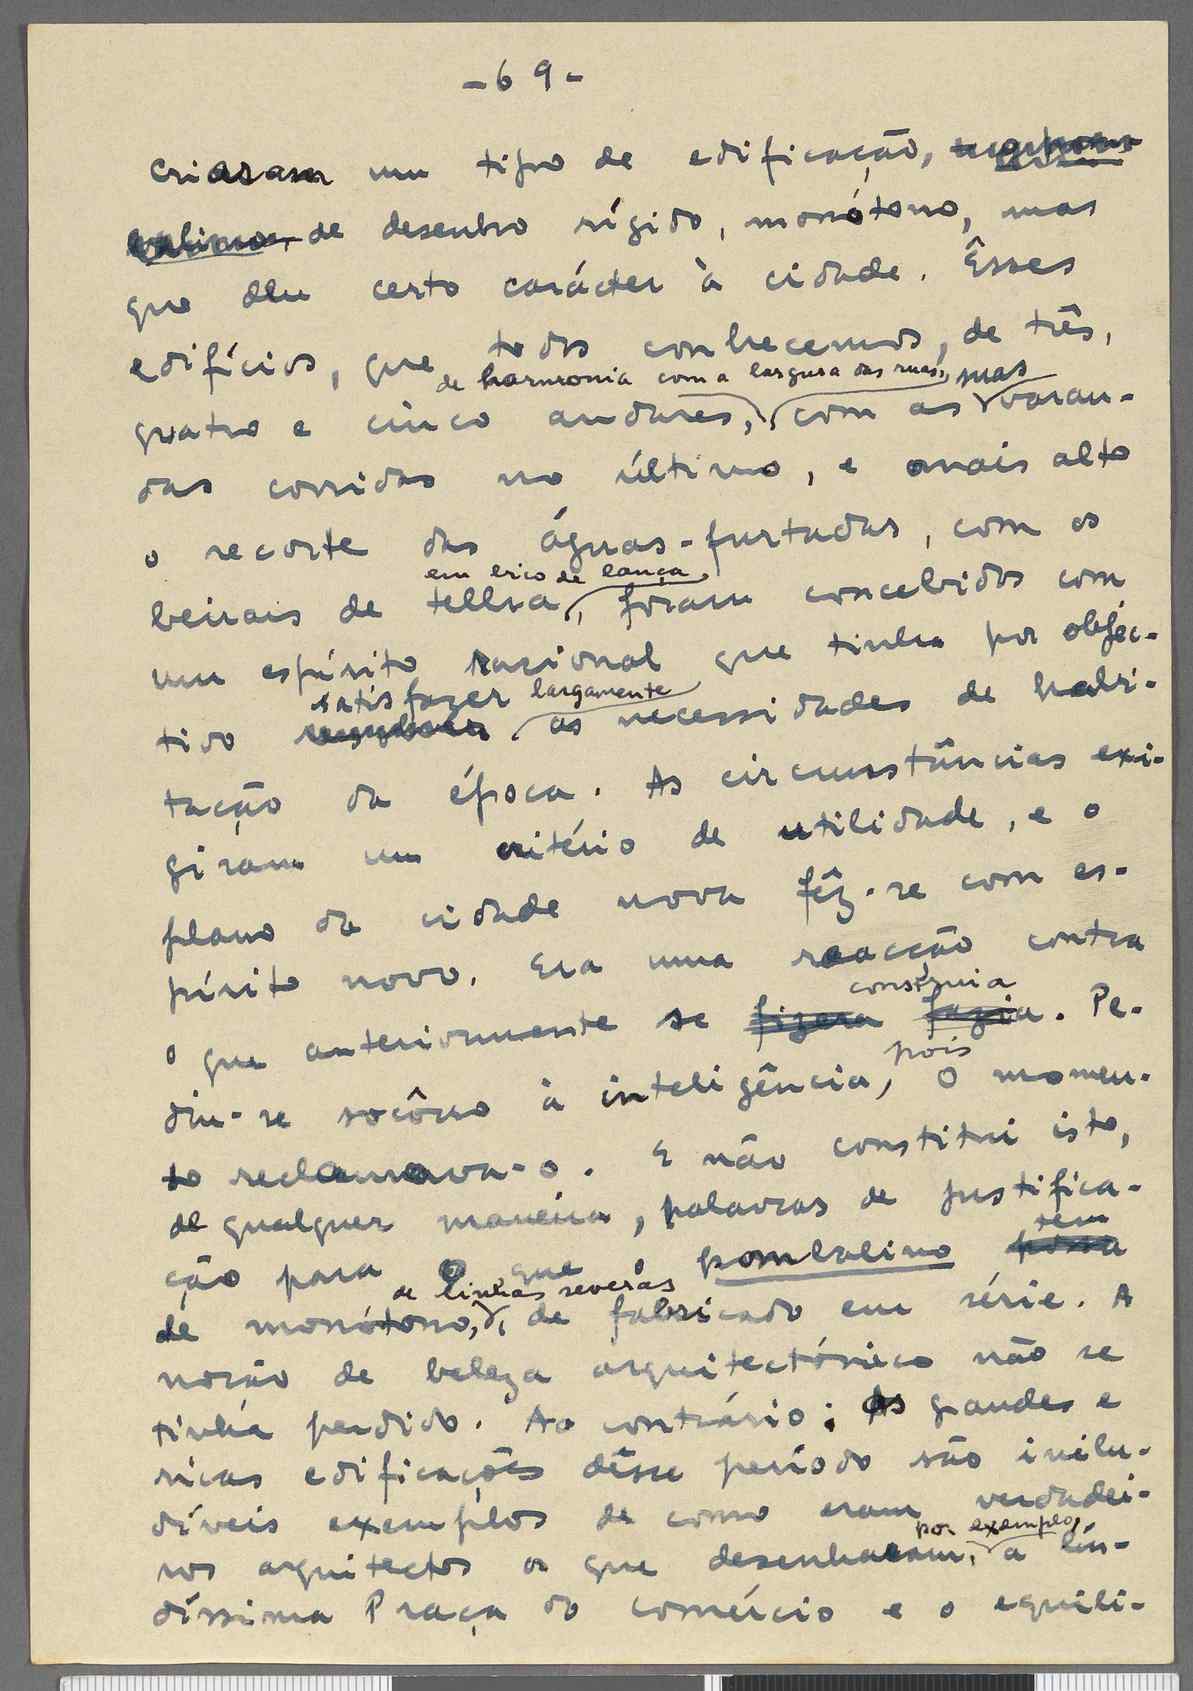 - 69 -
criaram um tipo de edificação,
de desenho rígido, monótono, mas
que deu certo carácter à cidade. Êsses
edifícios, que todos conhecemos, de três,
de harmonia com a largura das ruas, suas
quatro e cinco andares, com as varan-
das corridas no último, e mais alto
o recorte das águas-furtadas, com os
em bico de lança
beirais de telha, foram concebidos com
um espírito racional que tinha por objéc-
satisfazer largamente
tivo as necessidades de habi-
tação da época. As circunstâncias exi-
giram um critério de utilidade, e o
plano da cidade nova fêz-se com es-
pírito novo. Era uma reacção contra
construia
o que anteriormente se fizera fazia. Pe-
pois
diu-se socôrro à inteligência, o momen-
to reclamava-o. E não constitui isto,
de qualquer maneira, palavras de justifica-
tem
ção para o que o pombalino possa
de linhas severas
de monótono, de fabricado em série. A
noção de beleza arquitectónica não se
tinha perdido. Ao contrário: As grandes e
ricas edificações dêsse período são inilu-
díveis exemplos de como eram verdadei-
por exemplo,
ros arquitectos os que desenharam, a lin-
díssima Praça do comércio e o equili-